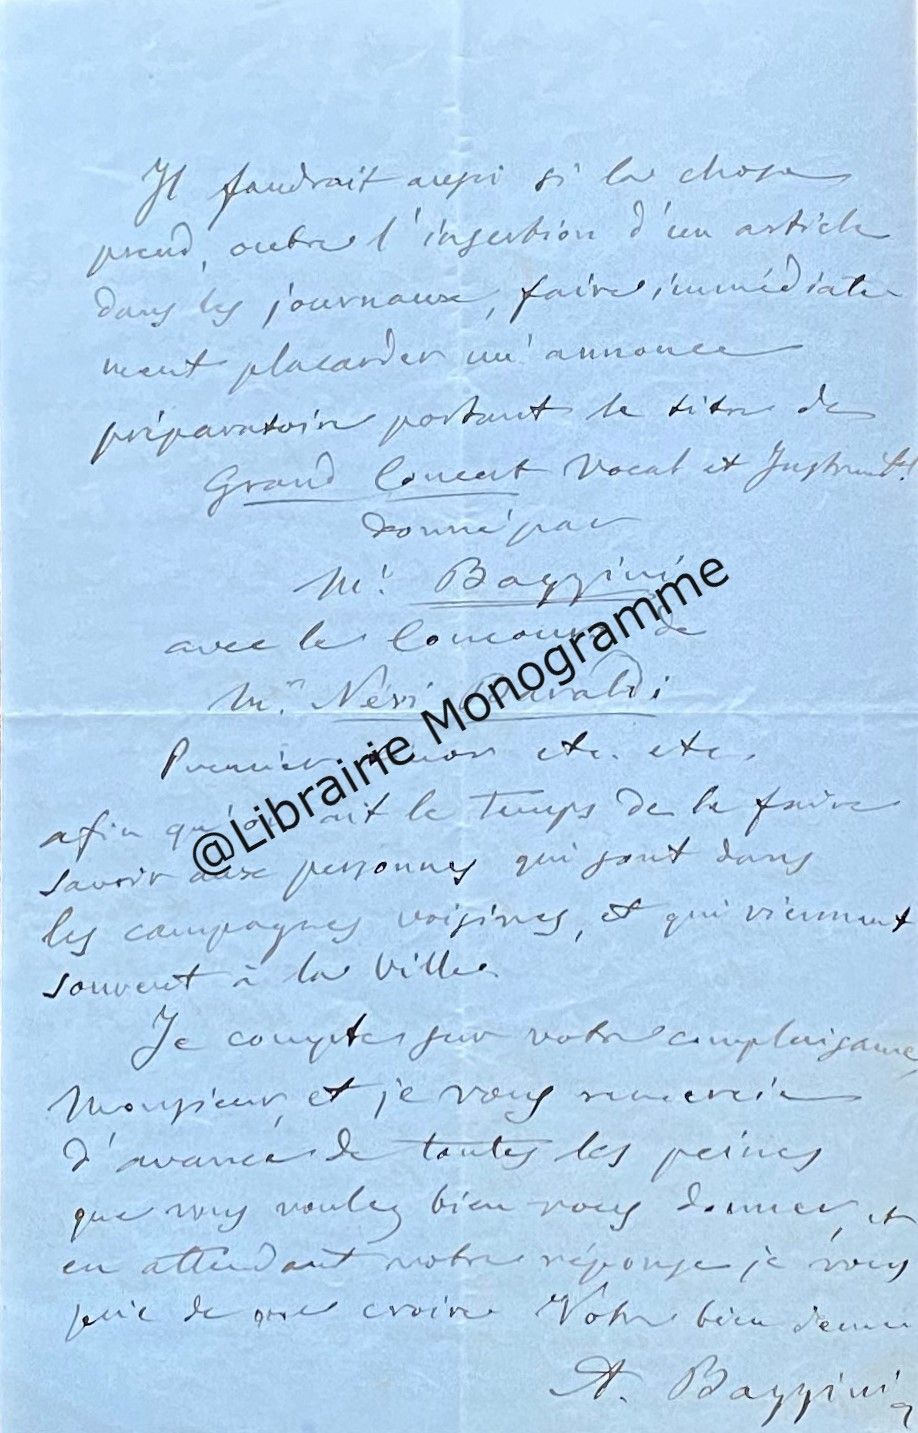 Il faudrait aussi si la chose
prend, outre l'insertion d'un article
dans les journaux, faire immédiate
ment placarder un' annonce
préparatoire portant le titre de
Grand Concert Vocal et Instrumtl
donné par
Mr. Bazzini
avec le Concours de
Mr. Néri
Premier etc. etc.
afin qu'on ait le temps de le faire
savoir aux personnes qui sont dans
les campagnes voisines, et qui viennent
souvent à la Ville.
Je compte sur votre complaisance,
Monsieur, et je vous remercie
d'avance de toutes les peines
que vous voulez bien vous donner, et
en attendant votre réponse je vous
prie de me croire Votre bien
A. Bazzini
@Librairie Monogramme